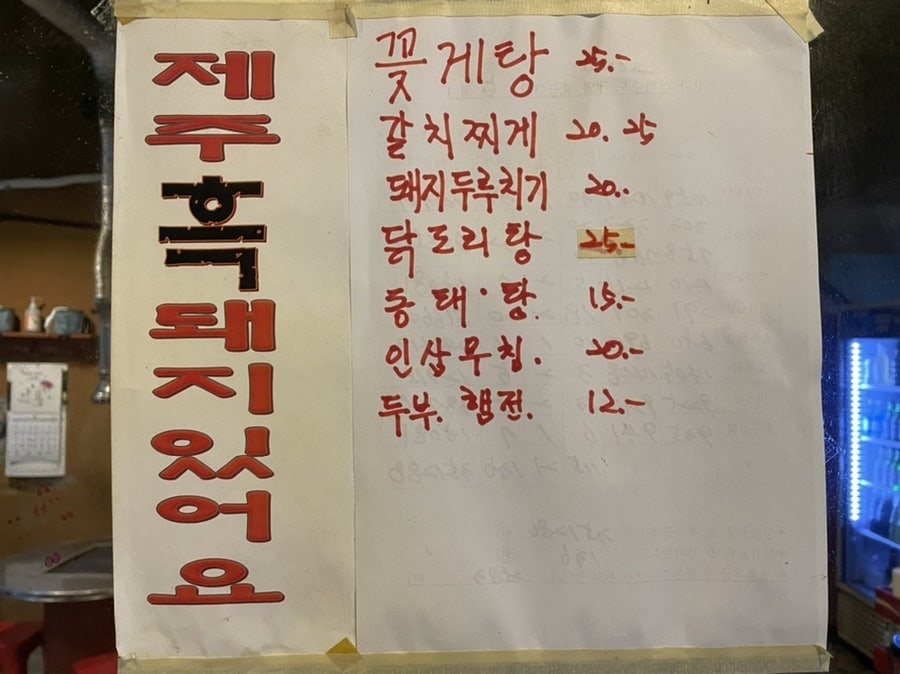 제주흑돼지있어요
꽃게탕 25.-
갈치찌게 20. 25
돼지두루치기 20..
닭도리탕 25.-
동태·탕. 15.-
인삼무침. 20.-
두부. 햄전. 12.-